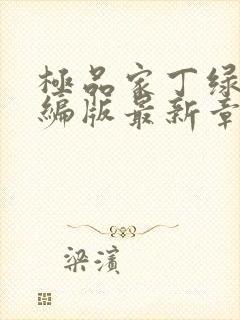 極品家丁绿
編版最新章
梁濱